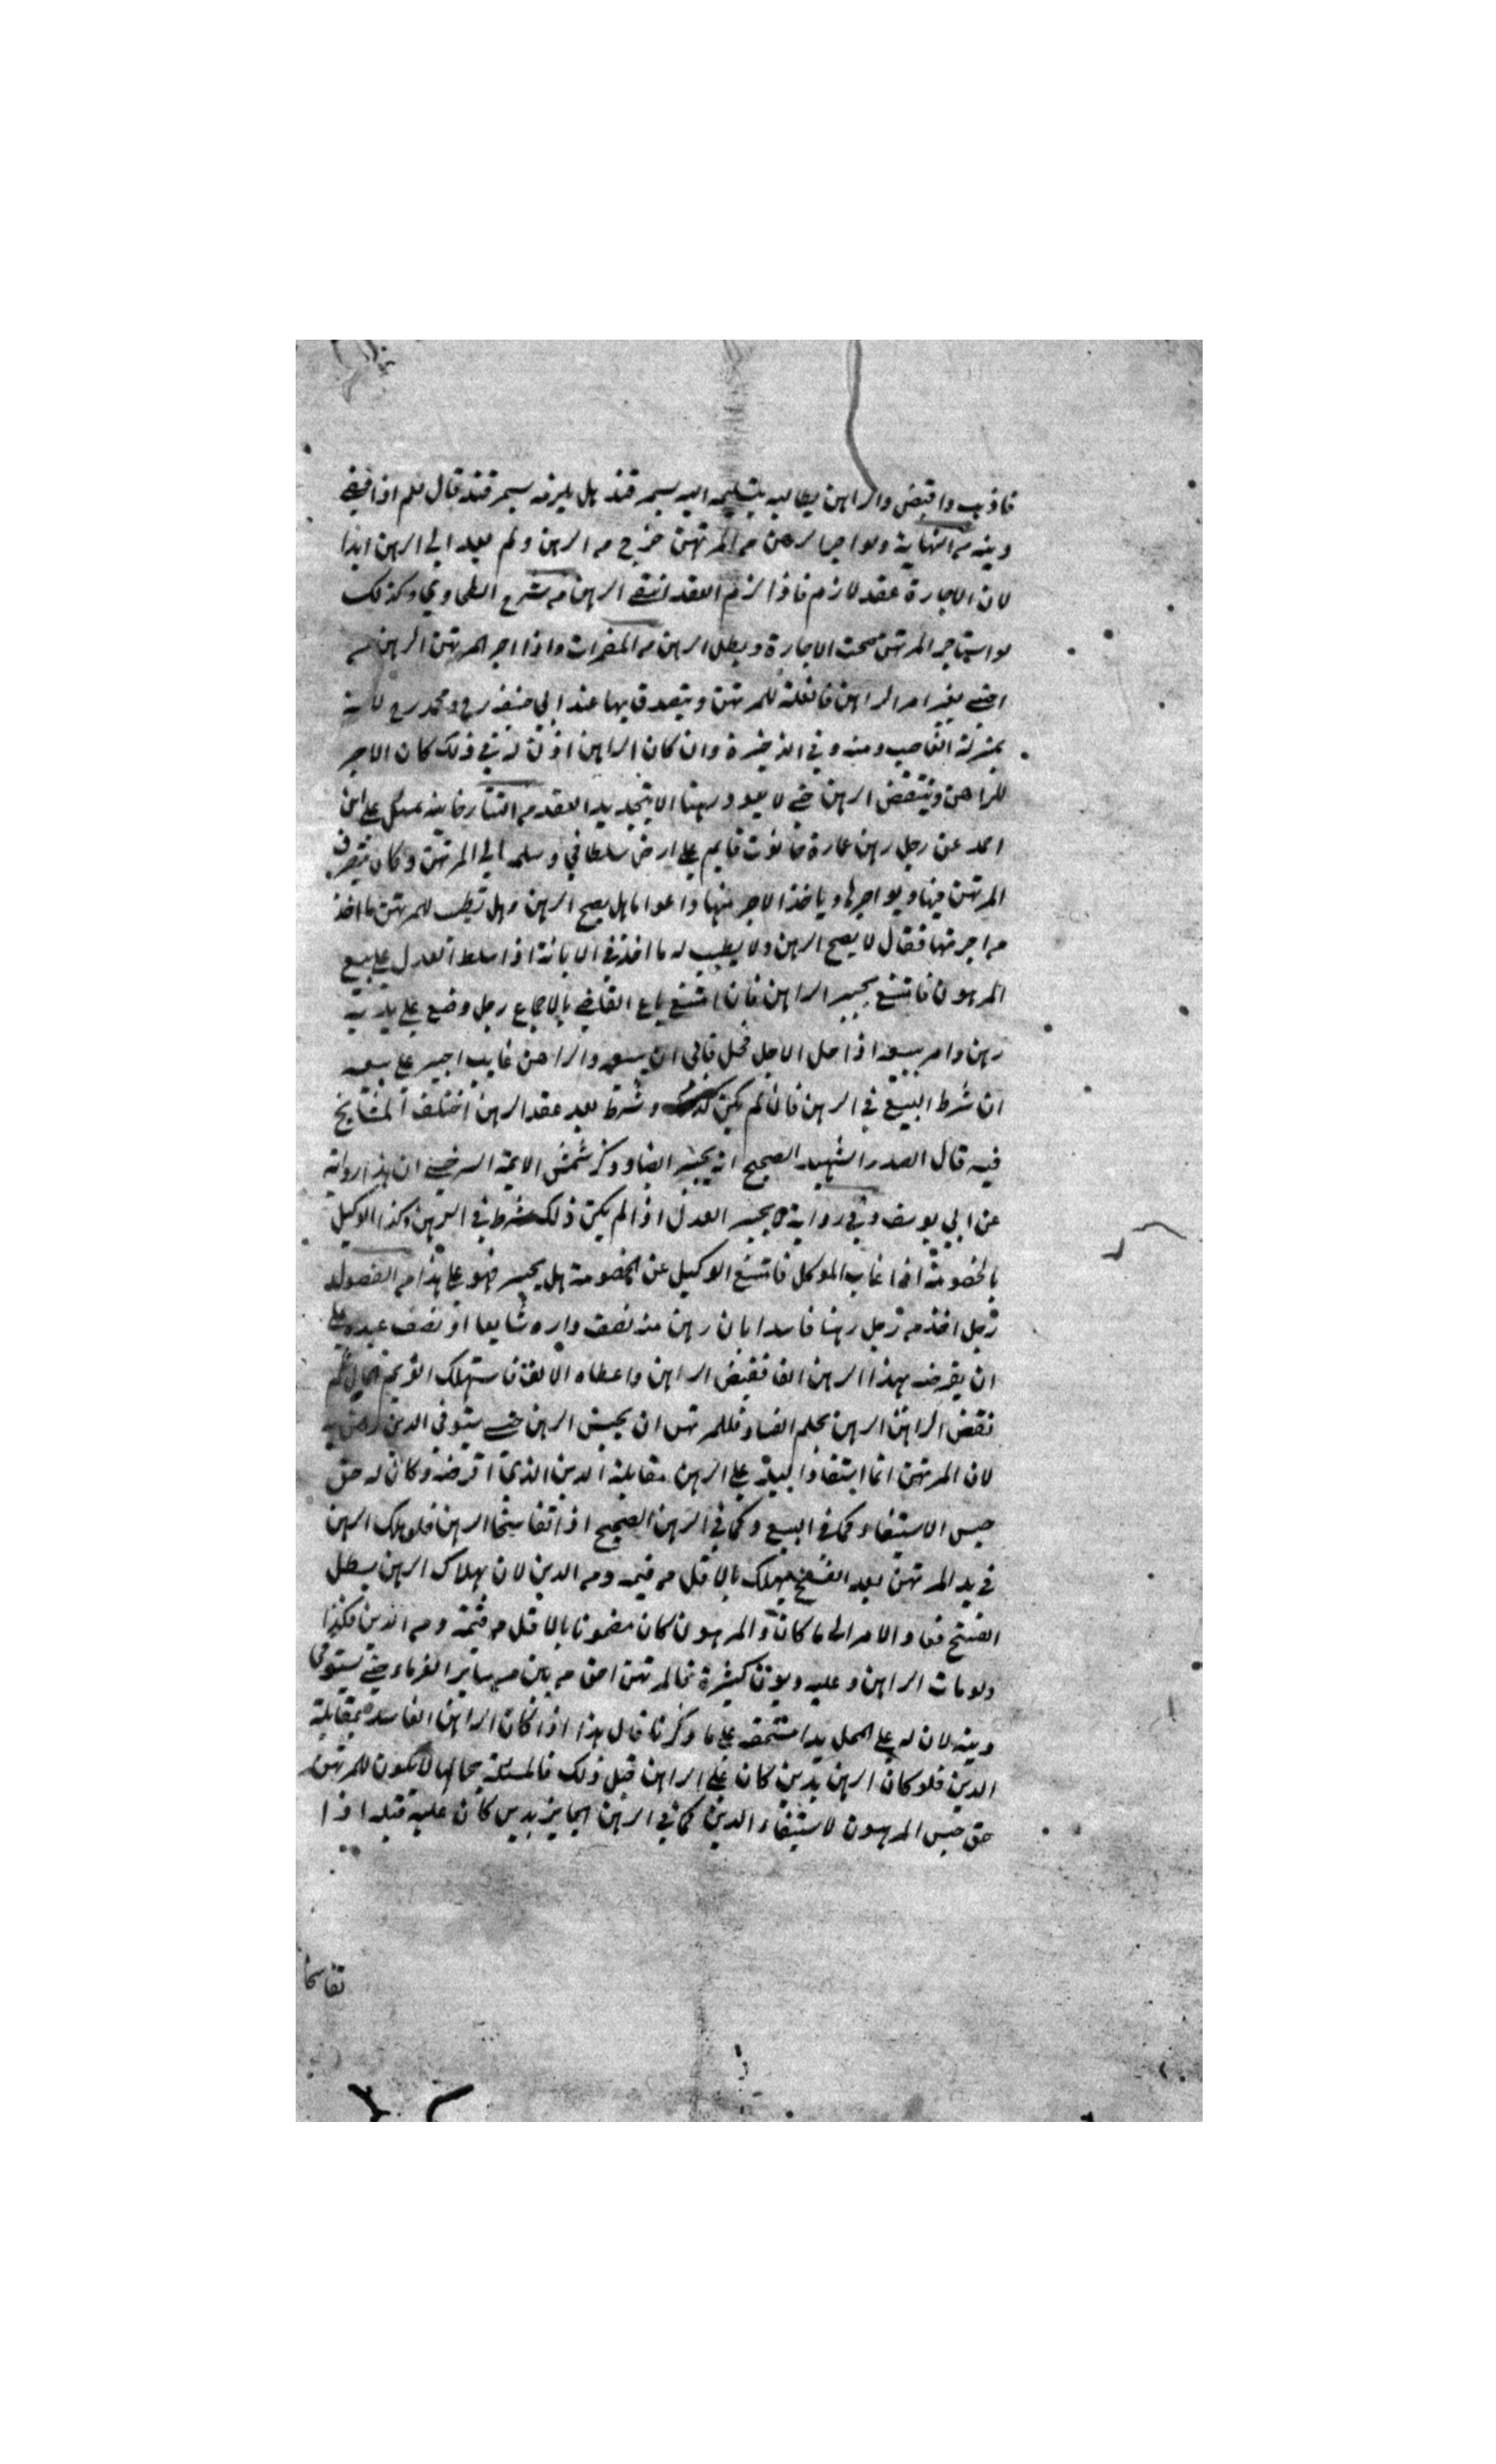 فاذهب واقبض والراهن يطالبه بتسليمه اليه بسمرقند هل يلزمه بسمرقند قال نعم اذا قضى
دينه من النهاية ولو اجر الرهن من المرتهن خرج من الرهن ولم يعد الى الرهن ابدا
لان الاجارة عقد لازم فاذا لزم العقد انتقى الرهن من شرح الطحاوي وكذلك
لو استاجر المرتهن صحت الاجارة وبطل الرهن من المضمرات واذا اجر المرتهن الرهن من
اجنبي بغير امر الراهن فالغلة للمرتهن ويتصدق بها عند ابي حنيفة رح ومحمد رح لانه
بمنزلة الغاصب ومنه وفي الذخيرة وان كان الراهن اذن له في ذلك كان الاجر
للراهن وينتقض الرهن حتى لا يعود رهنا الا بتجديد العقد من التتارخانية سئل علي ابن
احمد عن رجل رهن عمارة حانوت قايم على ارض سلطاني وسلم الى المرتهن وكان يتصرف
المرتهن فيها ويواجرها وياخذ الاجر منها اعواما هل يصح الرهن وهل تطيب للمرتهن ما اخذ
من اجرتها فقال لا يصح الرهن ولا يطيب له ما اخذ في الابانة اذا سلط العدل على بيع
المرهون فامتنع يجبر الراهن فان امتنع باع القاضي بالاجماع رجل وضع على يديه
رهن وامر ببيعه اذا حل الاجل فحل فابى ان يبيعه والراهن غايب اجبر على بيعه
ان شرط البيع في الرهن فان لم يكن وشرط بعد عقد الرهن اختلف المشايخ
فيه قال الصدر الشهيد الصحيح انه يجبر ايضا وذكر شمس الايمة السرخسي ان هذا رواية
عن ابي يوسف وفي رواية لا يجبر العدل اذا لم يكن ذلك شرط في الرهن وكذا الوكيل
بالخصومة اذا غاب الموكل فامتنع الوكيل عن الخصومة هل يجبر فهو على هذا من الفصول
رجل اخذ من رجل رهنا فاسدا بان رهن منه نصف داره شايعا او نصف عبده على
ان يقرضه بهذا الرهن الفا فقبض الراهن واعطاه الالف فاستهلك الغريم المال ثم
نقض الراهن الرهن بحكم الفساد فللمرتهن ان يحبس الرهن حتى يستوفي الدين
لان المرتهن انما استفاد اليد على الرهن مقابلة الدين الذي اقرضه وكان له حق
حبس الاستيفاء كما في البيع وكما في الرهن الصحيح اذا تفاسخا الرهن فلو هلك الرهن
في يد المرتهن بعد الفسخ يهلك بالاقل من قيمته ومن الدين لان بهلاك الرهن يبطل
الفسخ فعاد الامر الى ما كان والمرهون كان مضمونا بالاقل من قيمته ومن الدين فكذا
ولو مات الراهن وعليه ديون كثيرة فالمرتهن احق من بين ساير الغرماء حتى يستوفي
دينه لان له على المحل يدا مستحقه على ما ذكرنا قال هذا اذا كان الراهن الفاسد بمقابلة
الدين فلو كان الرهن بدين كان على الراهن قبل ذلك فالمسئلة بحالها لا يكون للمرتهن
حق حبس المرهون لاستيفاء الدين كما في الرهن الجايز بدين كان عليه قبله اذا
تفاسخا